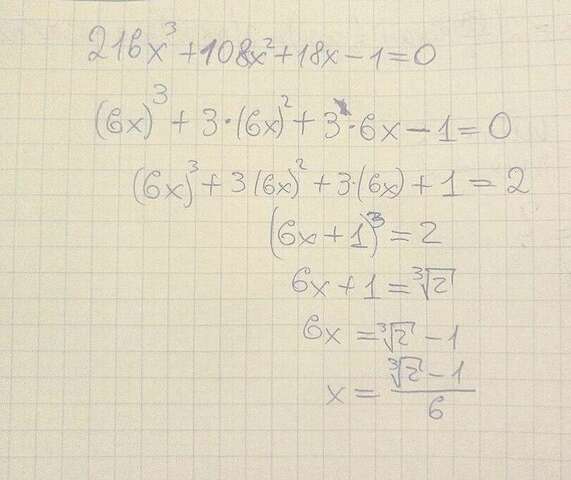 216x³+108x²+18x-1=0
(6x)³+3·(6x)²+3·6x-1=0
(6x)³+3(6x)²+3·(6x)+1=2
(6x+1)³=2
6x+1=∛2
6x=∛2-1
x=(∛2-1)/6